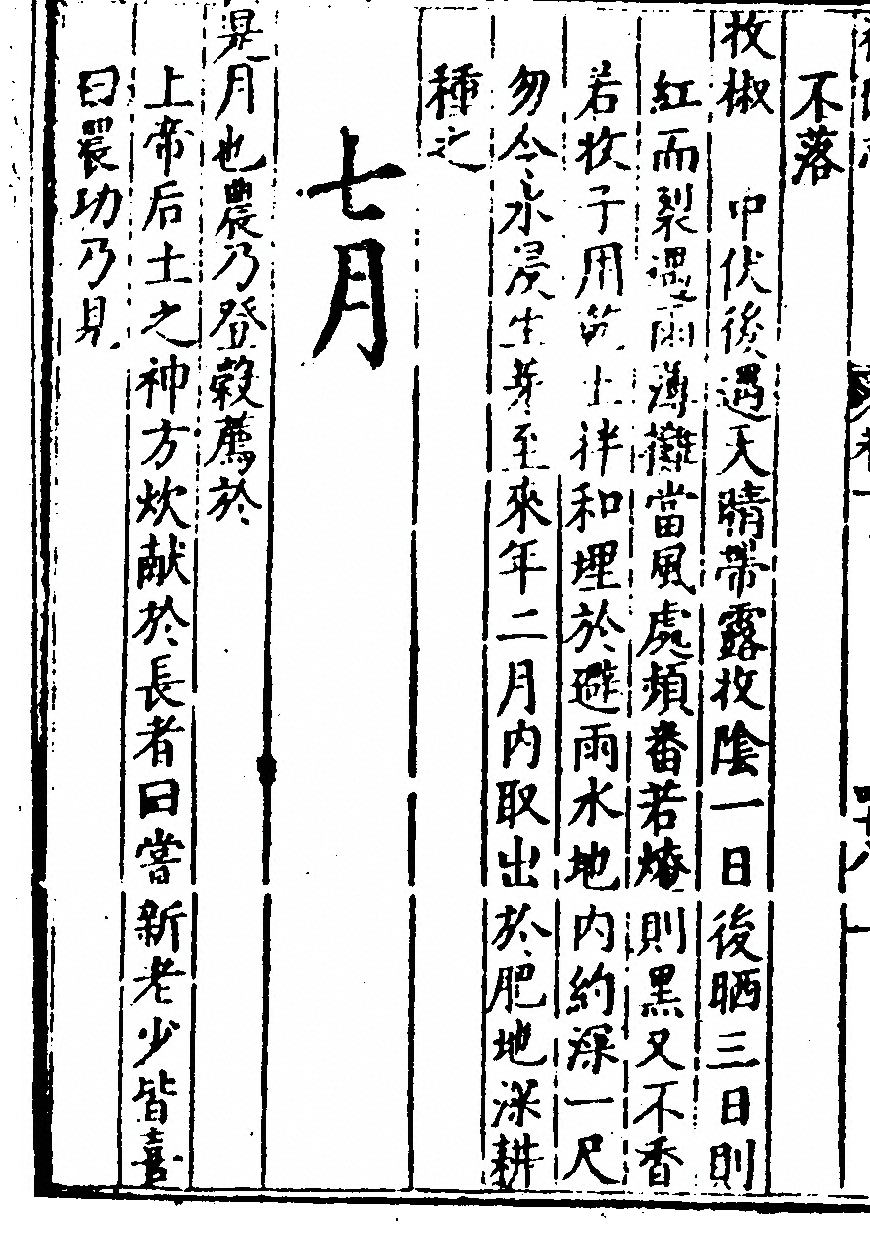 不落
收椒　中伏後遇天晴帶露收陰一日後晒三日則
紅而裂遇雨薄攤當風處頻番若𤊶則黑又不香
若收子用乾土拌和埋於避雨水地內約深一尺
勿令水浸生芽至來年二月內取出於肥地深耕
種之
七月
是月也農乃登穀薦於
上帝后土之神方炊献於長者曰嘗新老少皆喜
曰農功乃見